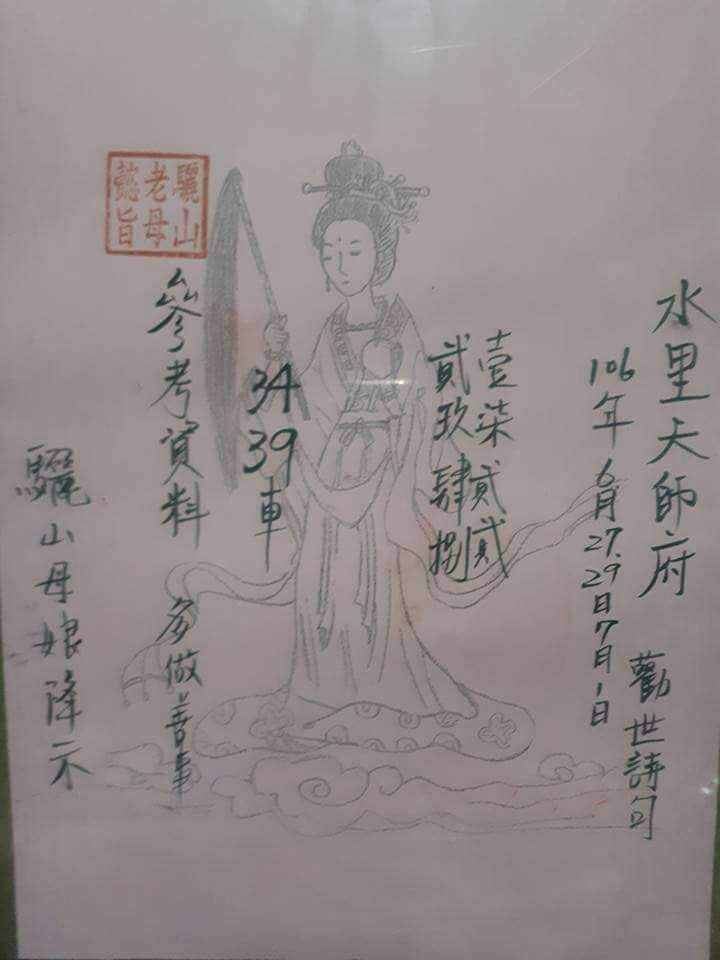 水里天師府
勸世詩句
106年6月27.29日7月1日
壹柒貳貳
貳玖肆捌
34
39車
驪山
老母
懿旨
參考資料
多做善事
驪山母娘降示